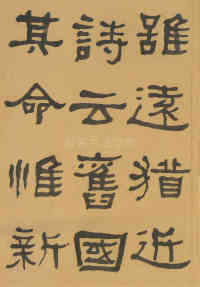 雖遠猶近
詩云舊國
其命惟新